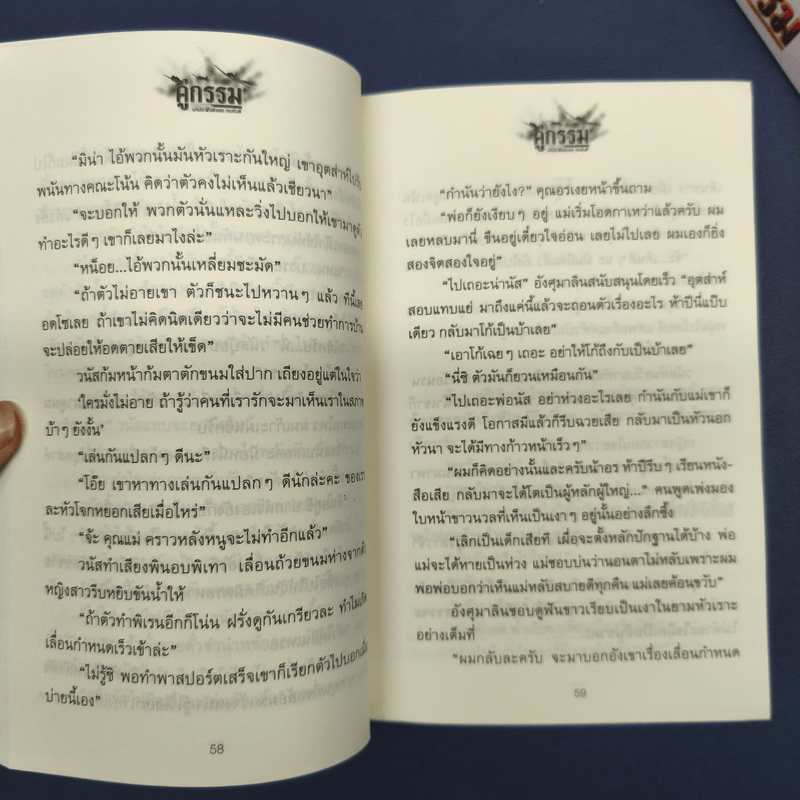 คู่กรรม
“มิน่า ไอ้พวกนั้นมันหัวเราะกันใหญ่ เขาอุตส่าห์ไป
พนันทางคณะโน้น คิดว่าตัวคงไม่เห็นแล้วเชียวนา”
“จะบอกให้ พวกตัวนั่นแหละวิ่งไปบอกให้เขามาดูตัว
ทำอะไรดีๆ เขาก็เลยมาไงล่ะ”
“หน็อย...ไอ้พวกนั้นเหลี่ยมชะมัด”
“ถ้าตัวไม่อายเขา ตัวก็ชนะไปหวานๆ แล้ว ทีนี้เลย
อดโซเลย ถ้าเขาไม่คิดนิดเดียวว่าจะไม่มีคนช่วยทำการบ้าน
จะปล่อยให้อดตายเสียให้เข็ด”
วนัสก้มหน้าก้มตาตักขนมใส่ปาก เถียงอยู่แต่ในใจว่า
‘ใครมั่งไม่อาย ถ้ารู้ว่าคนที่เรารักจะมาเห็นเราในสภาพ
บ้าๆ ยังงั้น’
“เล่นกันแปลกๆ ดีนะ”
“โอ๊ย เขาหาทางเล่นกันแปลกๆ ดีนักล่ะคะ ของเรา
ละหัวโจกหยอกเสียเมื่อไหร่”
“จ้ะ คุณแม่ คราวหลังหนูจะไม่ทำอีกแล้ว”
วนัสทำเสียงพินอบพิเทา เลื่อนถ้วยขนมห่างจากตัว
หญิงสาวรีบหยิบขันน้ำให้
“ถ้าตัวทำพิเรนอีกก็โน่น ฝรั่งดูกันเกรียวละ ทำไม
เลื่อนกำหนดเร็วเข้าล่ะ”
“ไม่รู้ซิ พอทำพาสปอร์ตเสร็จเขาก็เรียกตัวไปบอกเมื่อ
บ่ายนี้เอง”
58
คู่กรรม
“กำนันว่ายังไง?” คุณอรเงยหน้าขึ้นถาม
“พ่อก็ยังเงียบๆ อยู่ แม่เริ่มโอดกาเหว่าแล้วครับ ผม
เลยหลบมานี่ ขืนอยู่เดี๋ยวใจอ่อน เลยไม่ไปเลย ผมเองก็ยิ่ง
สองจิตสองใจอยู่”
“ไปเถอะน่านัส” อังศุมาลินสนับสนุนโดยเร็ว “อุตส่าห์
สอบแทบแย่ มาถึงแค่นี้แล้วจะถอนตัวเรื่องอะไร ห้าปีนี่แป๊บ
เดียว กลับมาโก้เป็นบ้าเลย”
“เอาโก้เฉยๆ เถอะ อย่าให้โก้ถึงกับเป็นบ้าเลย”
“นี่ซิ ตัวมันก็ยวนเหมือนกัน”
“ไปเถอะพ่อนัส อย่าห่วงอะไรเลย กำนันกับแม่เขาก็
ยังแข็งแรงดี โอกาสมีแล้วก็รีบฉวยเสีย กลับมาเป็นหัวนอก
หัวนา จะได้มีทางก้าวหน้าเร็วๆ”
“ผมก็คิดอย่างนั้นและครับน้าอร ห้าปีรีบๆ เรียนหนัง-
สือเสีย กลับมาจะได้โตเป็นผู้หลักผู้ใหญ่...” คนพูดเพ่งมอง
ใบหน้าขาวนวลที่เห็นเป็นเงาๆ อยู่นั้นอย่างลึกซึ้ง
“เลิกเป็นเด็กเสียที เผื่อจะตั้งหลักปักฐานได้บ้าง พ่อ
แม่จะได้หายเป็นห่วง แม่ชอบบ่นว่านอนตาไม่หลับเพราะผม
พอพ่อบอกว่าเห็นแม่หลับสบายดีทุกคืน แม่เลยค้อนขวับ”
อังศุมาลินชอบดูฟันขาวเรียบเป็นเงาในยามหัวเราะ
อย่างเต็มที่
“ผมกลับละครับ จะมาบอกอังเขาเรื่องเลื่อนกำหนด
59